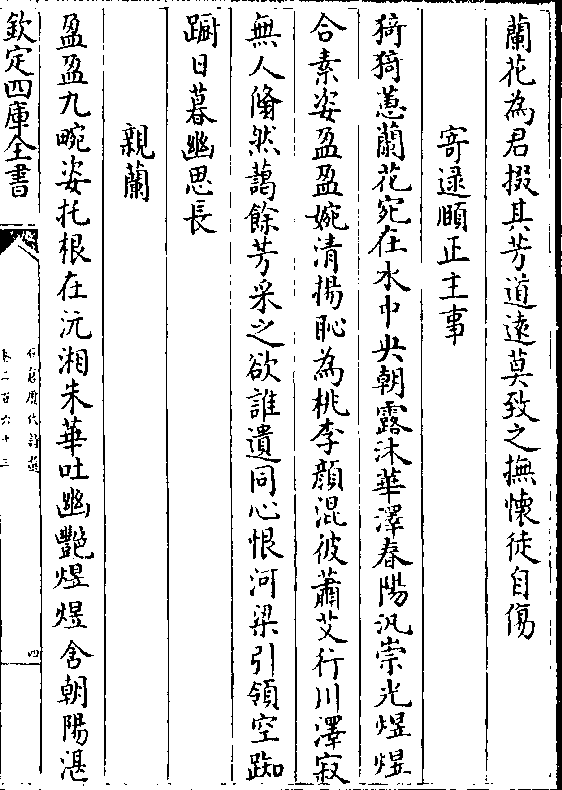 蘭花為君掇其芳道遠莫致之撫懷徒自傷
寄逯頤正主事
猗猗蕙蘭花宛在水中央朝露沐華澤春陽汎崇光煜煜
合素姿盈盈婉清揚恥為桃李顔混彼蕭艾行川澤寂
無人翛然藹餘芳采之欲誰遺同心恨河梁引領空踟
蹰日暮幽思長
親蘭
盈盈九畹姿托根在沅湘朱華吐幽艷煜煜含朝陽湛
欽定四庫全書
卷二百六十三
四